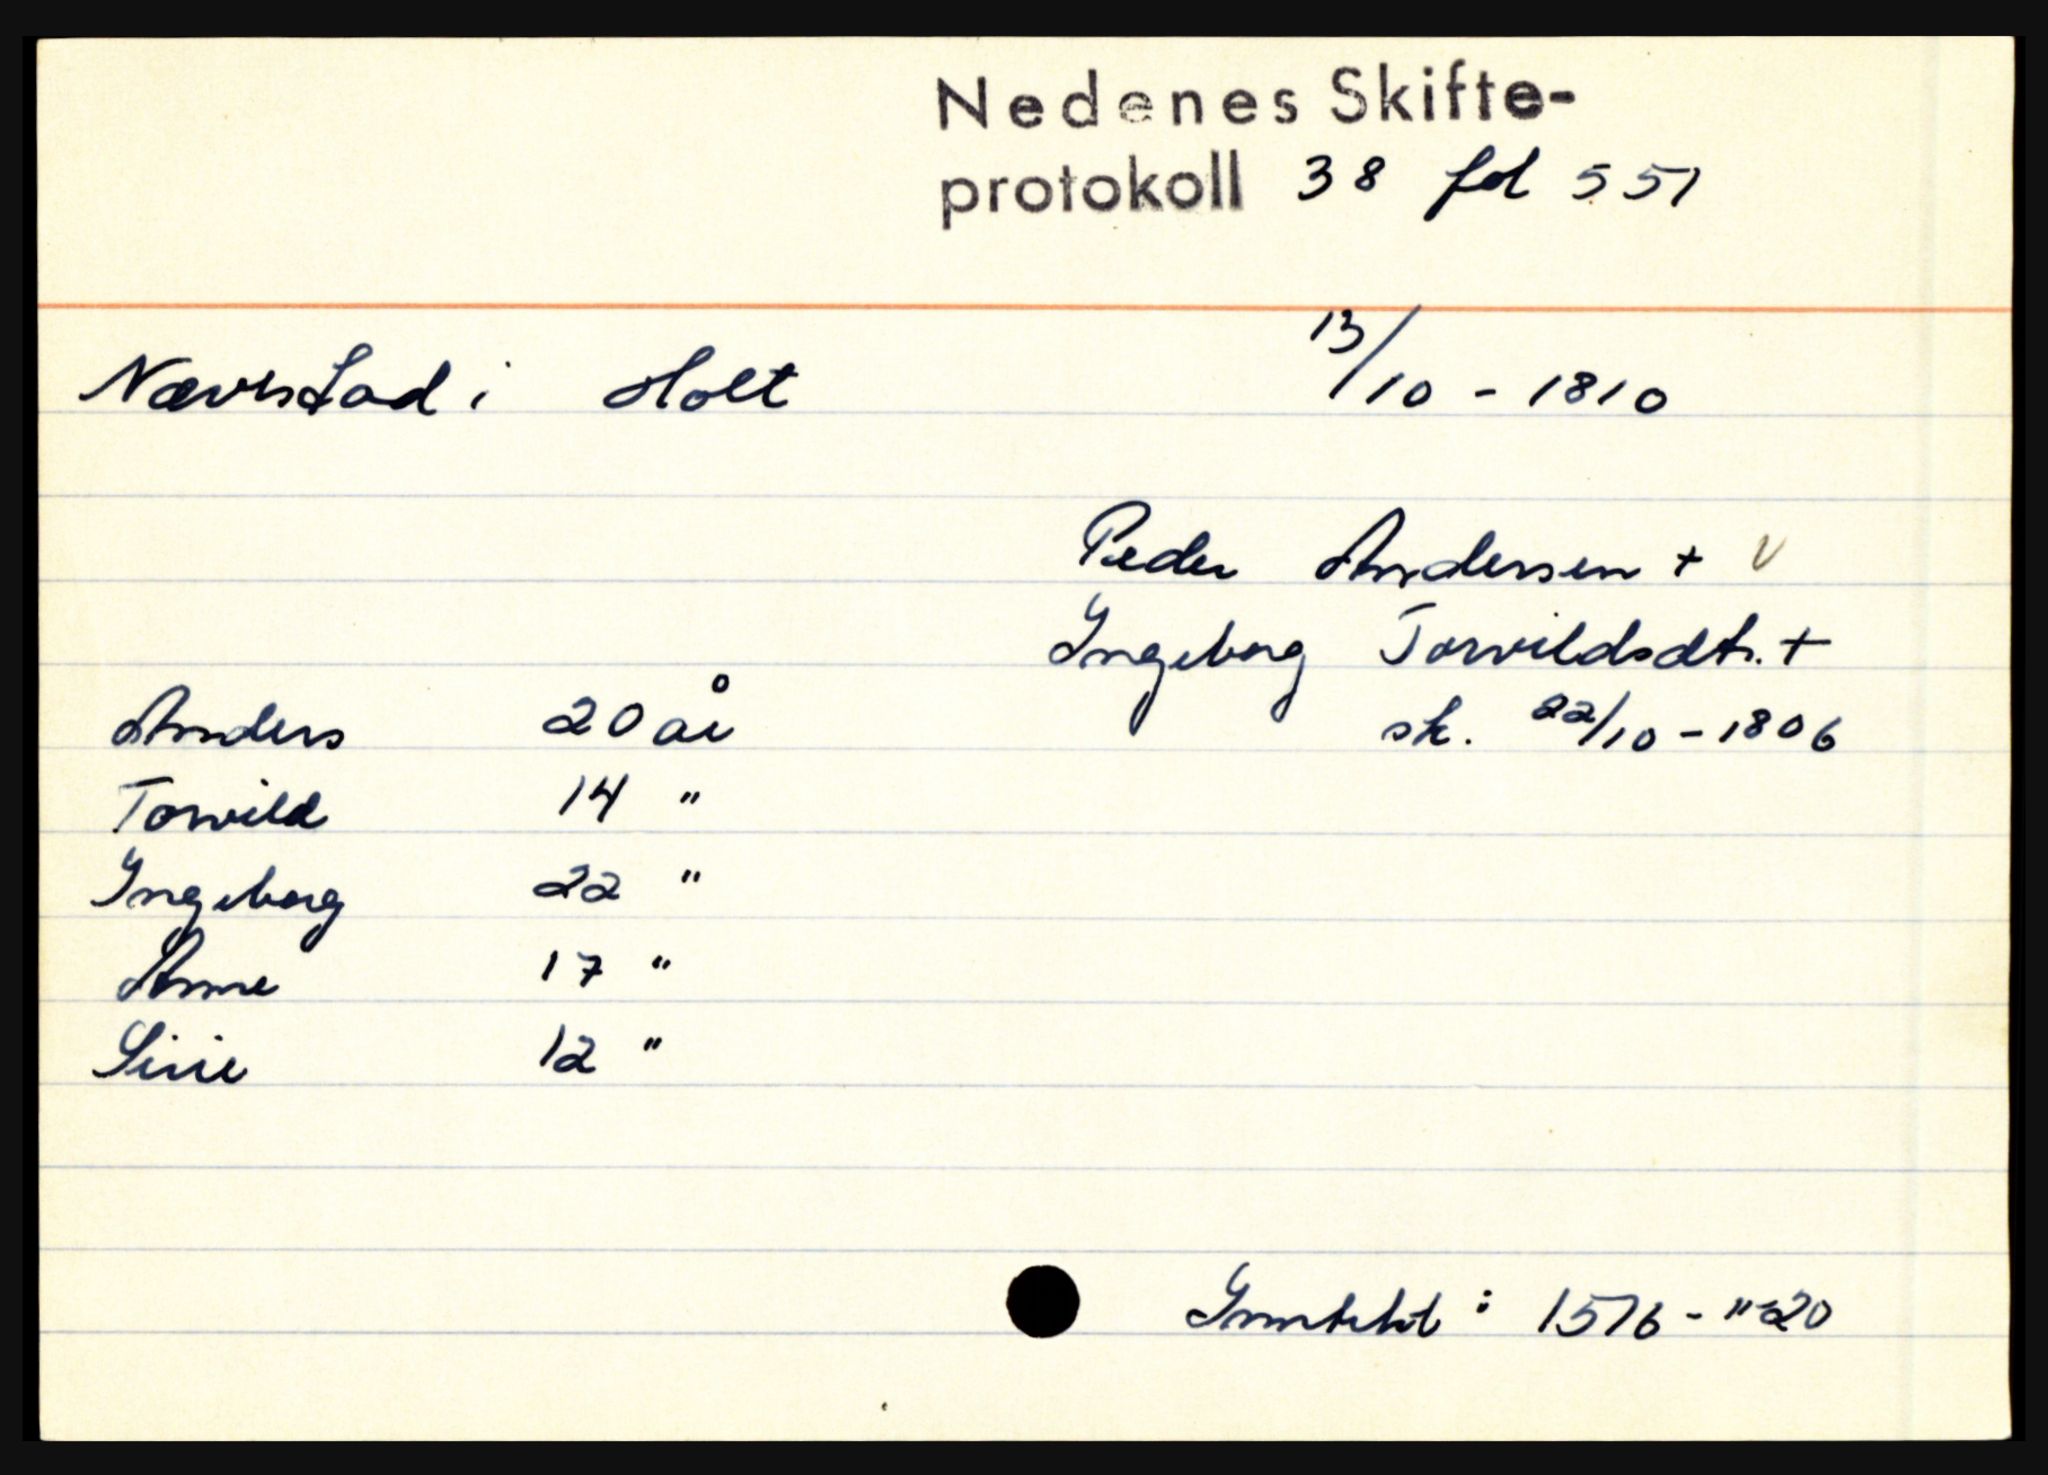 Nedenes Skifte-
protokoll 38 fol 551
Nævestad i Holt 13/10 - 1810
Peder Andersen + v
Ingeborg Torvildsdtr. +
sk. 22/10 - 1806
Anders 20 år
Torvild 14 "
Ingeborg 22 "
Anne 17 "
Sirie 12 "
Inntekt : 1576 - " - 20